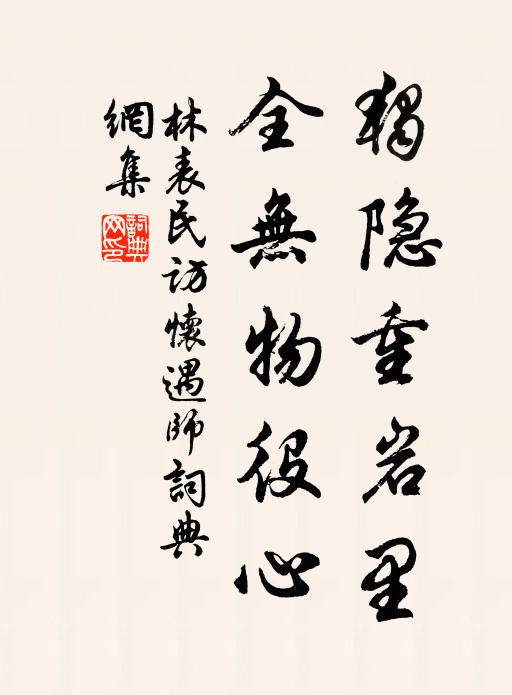 獨隐重岩里
全無物役心
林表民訪懷遇師詞典
網集
詞典網印